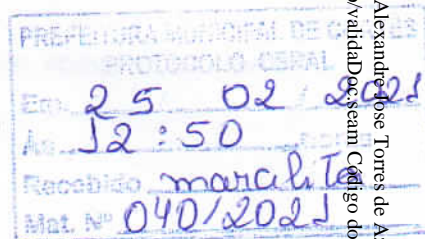 PREFEITURA MUNICIPAL DE
PROTOCOLO GERAL
Em 25 02 / 2021
Às 12:50
Recebido
Mat. Nº 040/2021
Alexandre Jose Torres de
/validaDoc.seam Código do